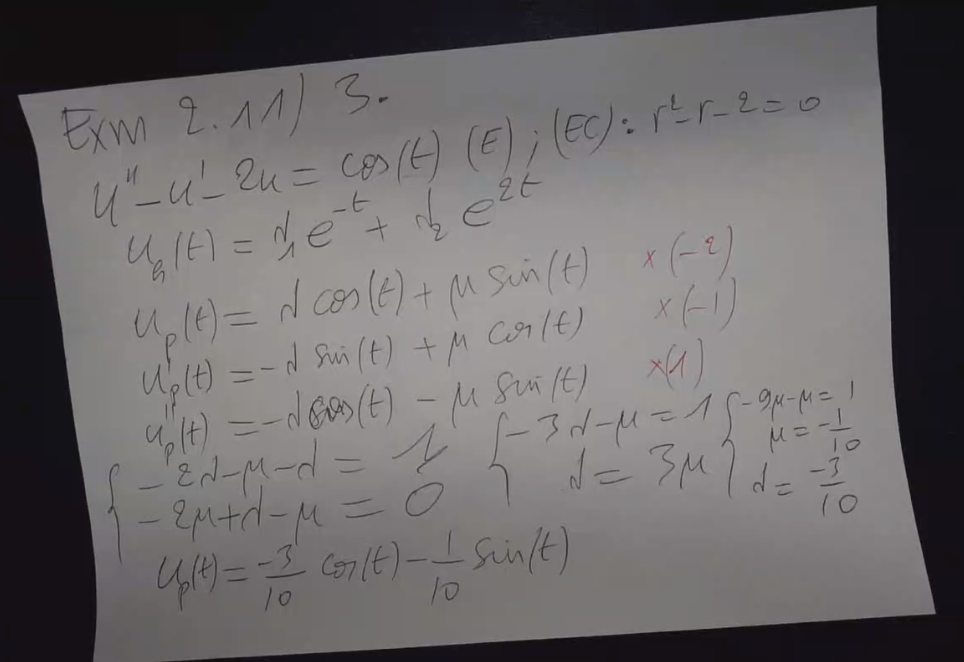 Exm 2.11) 3.
u'' - u' - 2u = cos(t) (E) ; (EC) : r² - r - 2 = 0
u_h(t) = λ₁e^{-t} + λ₂e^{2t}
u_p(t) = λ cos(t) + μ sin(t) ×(-2)
u'_p(t) = -λ sin(t) + μ cos(t) ×(-1)
u''_p(t) = -λ cos(t) - μ sin(t) ×(1)
{ -2λ - μ - λ = 1 { -3λ - μ = 1 { -9μ - μ = 1
μ = -1/10
{ -2μ + λ - μ = 0 λ = 3μ λ = -3/10
u_p(t) = -3/10 cos(t) - 1/10 sin(t)